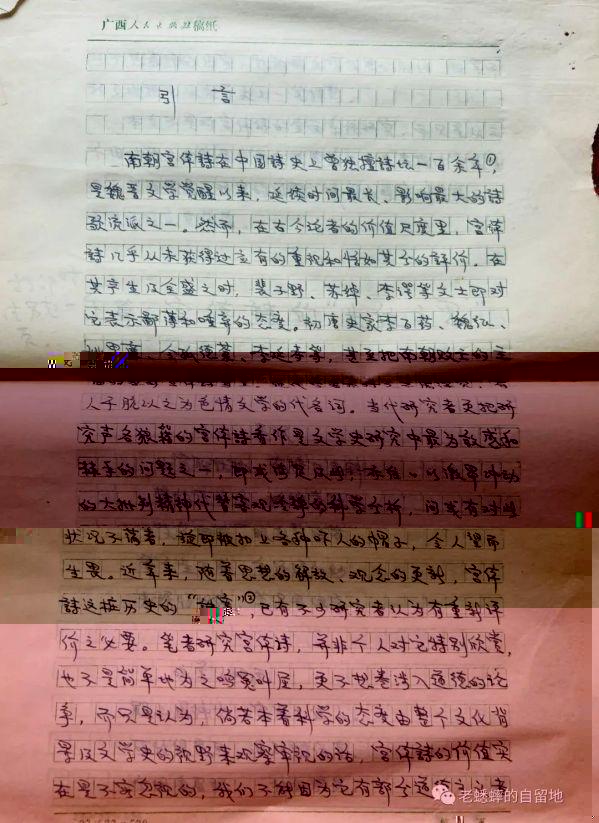 广西人民出版社稿纸
引 言
南朝宫体詩在中国詩史上曾独擅詩坛一百余年①，
是魏晋文学觉醒以来，延续时间最长、影响最大的詩
歌流派之一。然而，在古今论者的价值尺度里，宫体
詩几乎从未获得过应有的重视和恰如其分的評价。在
其产生以及全盛之时，裴子野、苏绰、李谔等文士即对
它表示鄙薄和唾弃的态度。初唐史家李百药、魏征、
令狐德棻、李延寿等，甚至把南朝败亡的
人予脱以之为色情文学的代名词。当代研究者更把研
究声名狼籍的宫体詩看作是文学史研究中最为敏感和
棘手的问题之一，
的大批判精神代替客观学术的科学分析，间或有对
状况不满者，旋即被扣上各种吓人的帽子，令人望而
生畏。近年来，随着思想的解放、观念的更新，宫体
詩这桩历史的"②，已有不少研究者认为有重新评
价之必要。笔者研究宫体诗，并非个人对它特别欣赏，
也不是简单地为之鸣冤叫屈，更不想卷入道德的论
争，而只是认为，倘若本着科学的态度由整个文化背
景以及文学史的视野来观察审视的话，宫体詩的价值实
在是不容忽视的，我们不能因为它有部分
老蟋蟀的自留地